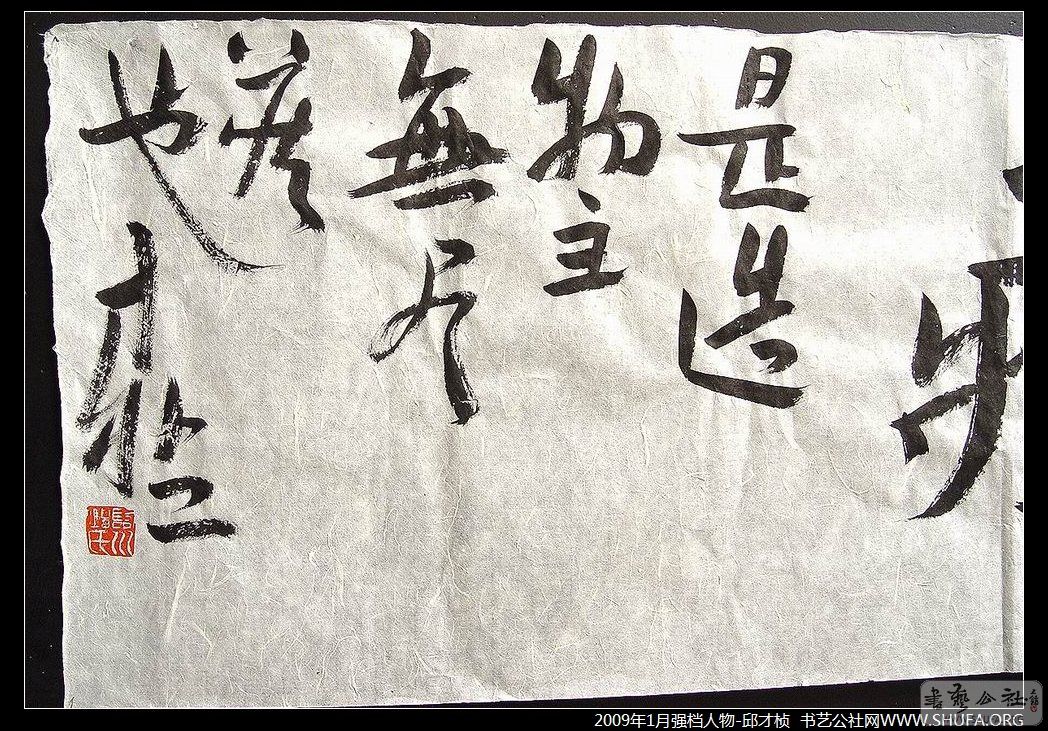 是造
物主
無尽
藏
也才楨
2009年1月强档人物-邱才桢 书艺公社网WWW.SHUFA.ORG
书艺公社